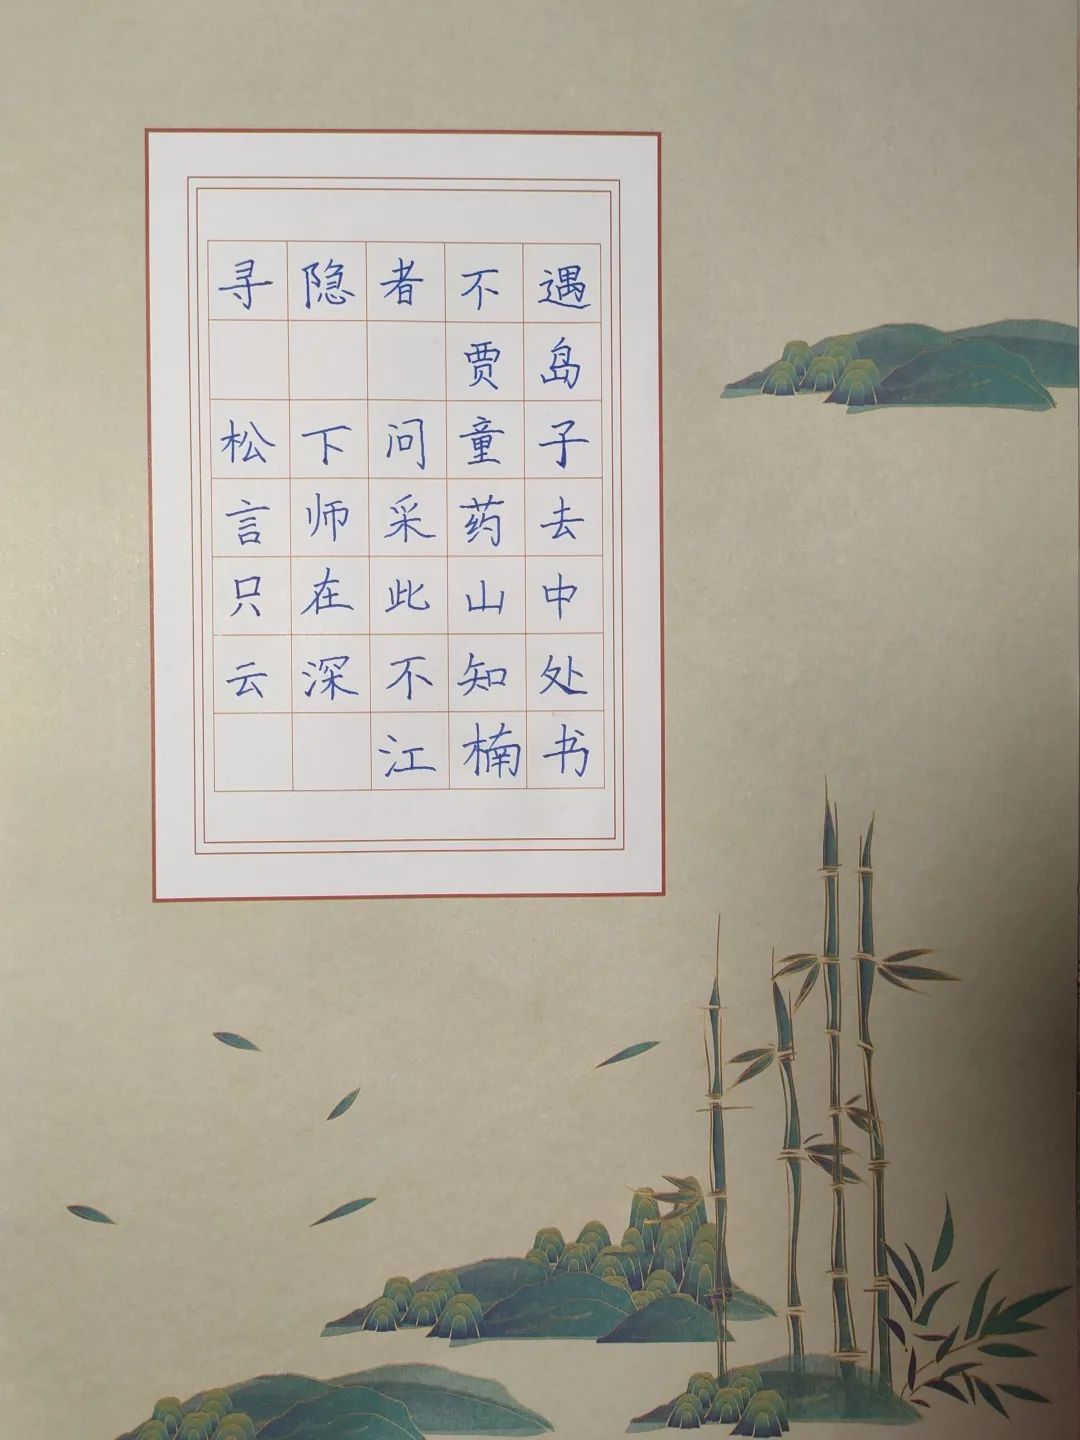 寻隐者不遇
贾岛
松下问童子
言师采药去
只在此山中
云深不知处
江楠书